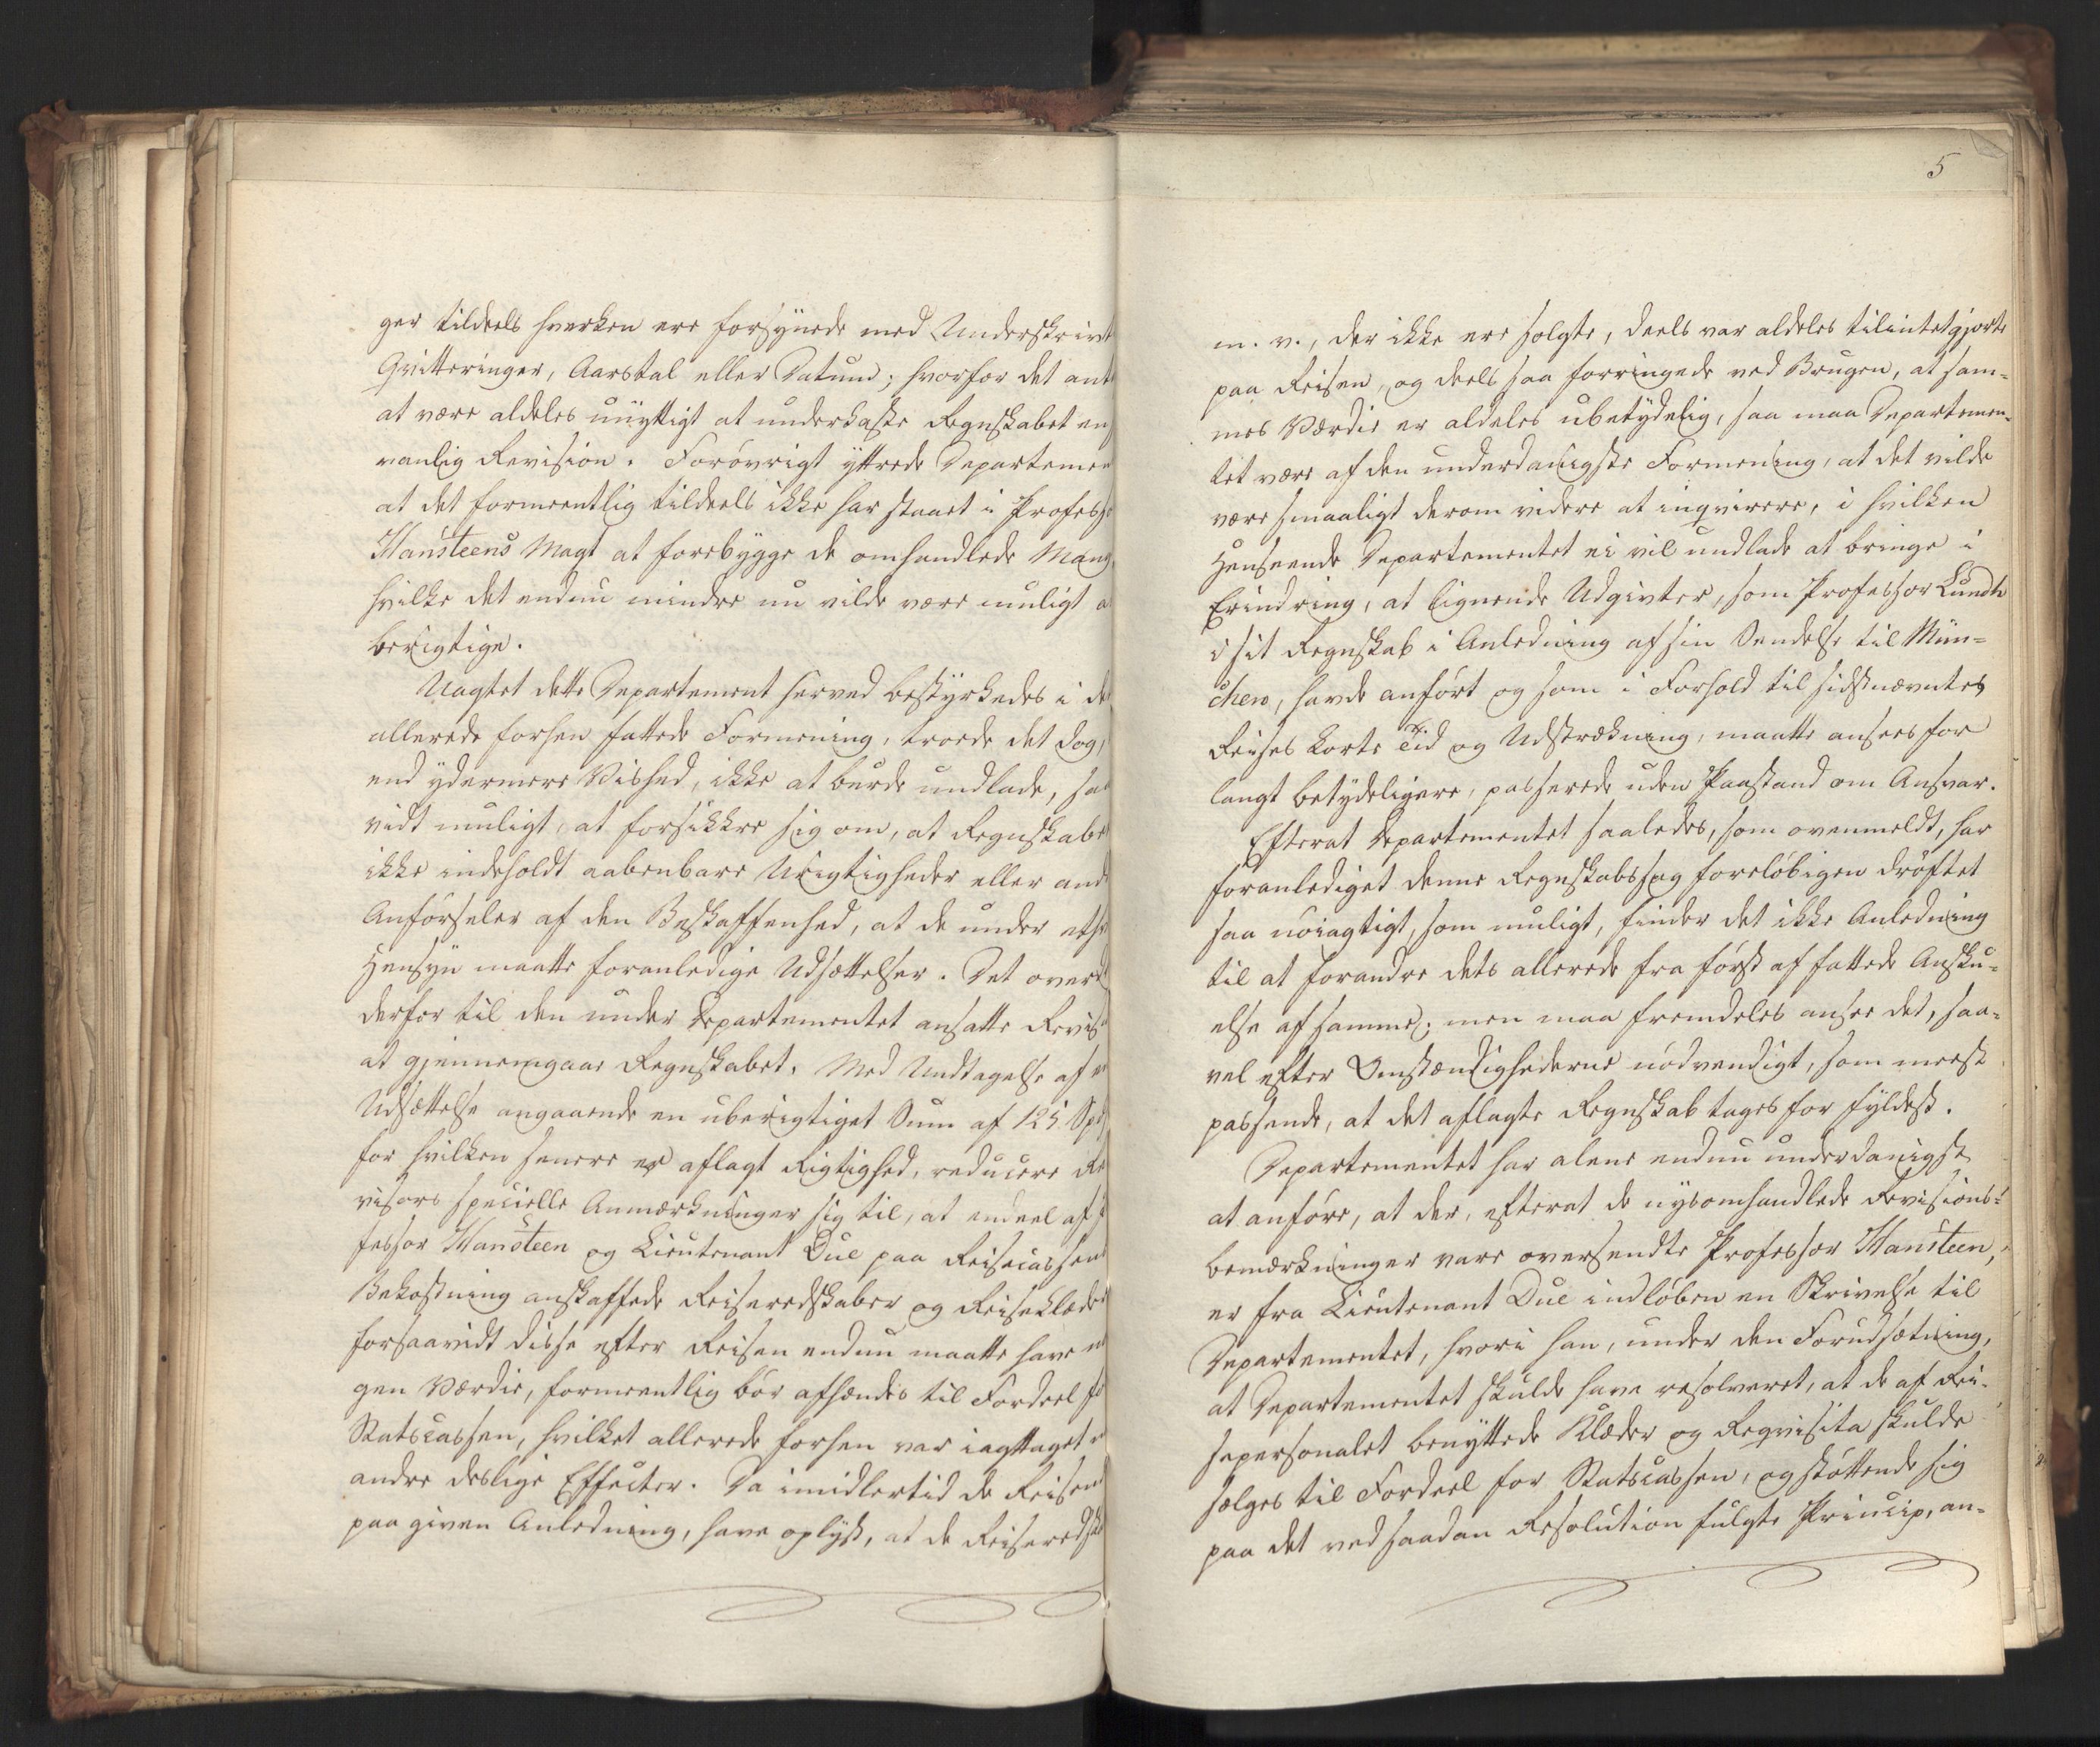 ger tildeels hverken ere forsynede med Underskrivt
Qvitteringer, Aarstal eller Datum; hvorfor det ant
at være aldeles unyttigt at underkaste Regnskabet en
vanlig Revision. Forøvrigt yttrede Departemen
at det formeentlig tildeels ikke har staaet i Professo
Hansteens Magt at forebygge de omhandlede Mang
hvilke det endnu mindre nu vilde være muligt a
berigtige.
Uagtet dette Departement herved bestyrkedes i de
allerede forhen fattede Formening, troede det dog,
end ydermere Vished, ikke at burde undlade, saa
vidt muligt, at forsikkre sig om, at Regnskabet
ikke indeholdt aabenbare Urigtigheder eller and
Anførseler af den Beskaffenhed, at de under eth
Hensyn maatte foranledige Udsættelser. Det overd
derfor til den under Departementet ansatte Revis
at gjennemgaae Regnskabet. Med Undtagelse af e
Udsættelse angaaende en uberigtiget Sum af 125 Spd
for hvilken senere er aflagt Rigtighed, reducere Re
visors specielle Anmærkninger sig til, at endeel af
fessor Hansteen og Lieutenant Due paa Reisecassen
Bekostning anskaffede Reiseredskaber og Reiseklæder
forsaavidt disse efter Reisen endnu maatte have no
gen Værdie, formeentlig bør afhændes til Fordeel fo
Statscassen, hvilket allerede forhen var iagttaget
andre deslige Effecter. Da imidlertid de Reisen
paa given Anledning, have oplyst, at de Reiseredska
5
m. v., der ikke ere solgte, deels var aldeles tilintetgjorte
paa Reisen, og deels saa forringede ved Brugen, at sam-
mes Værdie er aldeles ubetydelig, saa maa Departemen-
tet være af den underdanigste Formening, at det vilde
være smaaligt derom videre at inqvirere, i hvilken
Henseende Departementet ei vil undlade at bringe i
Erindring, at lignende Udgivter, som Professor Lundh
i sit Regnskab i Anledning af sin Sendelse til Mün-
chen, havde anført og som i Forhold til sidstnævntes
Reises korte Tid og Udstrækning, maatte ansees for
langt betydeligere, passerede uden Paastand om Ansvar.
Efterat Departementet saaledes, som ovenmeldt, har
foranlediget denne Regnskabssag foreløbigen drøftet
saa nøiagtigt, som muligt, finder det ikke Anledning
til at forandre dets allerede fra først af fattede Ansku-
else af samme; men maa fremdeles ansee det, saa-
vel efter Omstændighederne nødvendigt, som meest
passende, at det aflagte Regnskab tages for fyldest.
Departementet har alene endnu underdanigst
at anføre, at der, efterat de nysomhandlede Revisions-
bemærkninger vare oversendte Professor Hansteen,
er fra Lieutenant Due indløben en Skrivelse til
Departementet, hvori han, under den Forudsætning,
at Departementet skulde have resolveret, at de af Rei-
sepersonalet benyttede Klæder og Reqvisita skulde
sælges til Fordeel for Statscassen, og støttende sig
paa det ved saadan Resolution fulgte Princip, an-